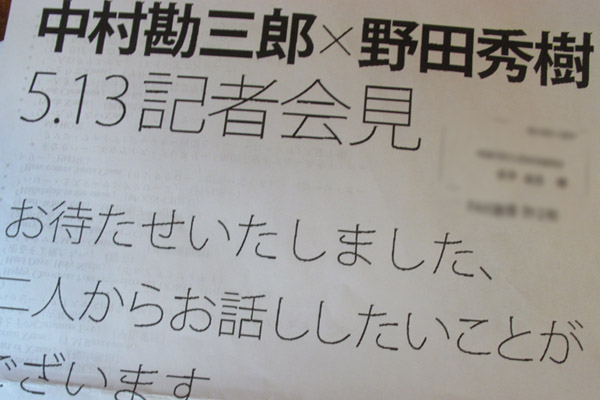 中村勘三郎×野田秀樹
5.13記者会見
お待たせいたしました、
二人からお話ししたいことが
ございます